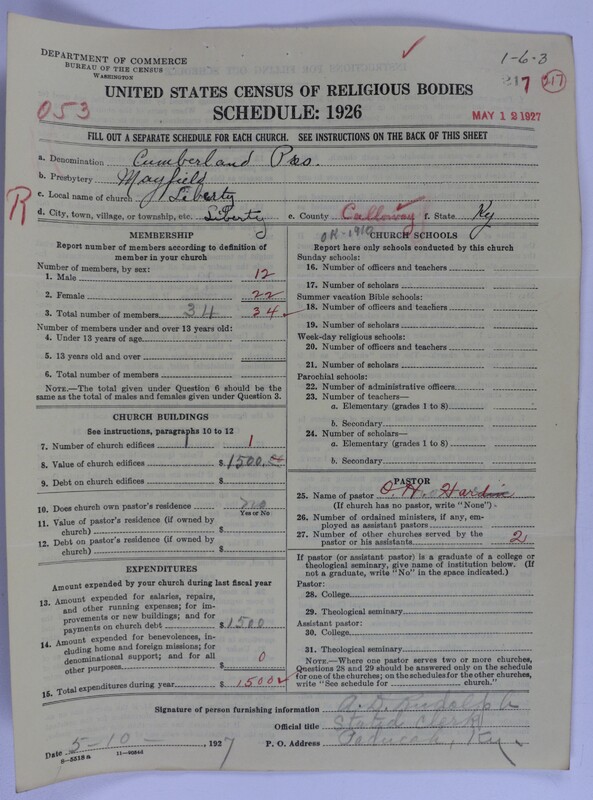 DEPARTMENT OF COMMERCE
BUREAU OF THE CENSUS
WASHINGTON
1-6-3
217 217
053
UNITED STATES CENSUS OF RELIGIOUS BODIES
SCHEDULE: 1926
MAY 12 1927
FILL OUT A SEPARATE SCHEDULE FOR EACH CHURCH. SEE INSTRUCTIONS ON THE BACK OF THIS SHEET
a. Denomination Cumberland Pres.
b. Presbytery Mayfield
R
c. Local name of church Liberty
d. City, town, village, or township, etc. Liberty e. County Calloway f. State Ky
MEMBERSHIP
Report number of members according to definition of
member in your church
Number of members, by sex:
1. Male 12
2. Female 22
3. Total number of members 34 34
Number of members under and over 13 years old:
4. Under 13 years of age
5. 13 years old and over
6. Total number of members
NOTE.—The total given under Question 6 should be
the same as the total of males and females given under Question 3.
CHURCH BUILDINGS
See instructions, paragraphs 10 to 12
7. Number of church edifices 1 1
8. Value of church edifices $ 1500.00
9. Debt on church edifices $
10. Does church own pastor's residence no
Yes or No
11. Value of pastor's residence (if owned by
church) $
12. Debt on pastor's residence (if owned by
church) $
EXPENDITURES
Amount expended by your church during last fiscal year
13. Amount expended for salaries, repairs,
and other running expenses; for im-
provements or new buildings; and for
payments on church debt $ 1500
14. Amount expended for benevolences, in-
cluding home and foreign missions; for
denominational support; and for all
other purposes $ 0
15. Total expenditures during year $ 1500
OK-1910
CHURCH SCHOOLS
Report here only schools conducted by this church
Sunday schools:
16. Number of officers and teachers
17. Number of scholars
Summer vacation Bible schools:
18. Number of officers and teachers
19. Number of scholars
Week-day religious schools:
20. Number of officers and teachers
21. Number of scholars
Parochial schools:
22. Number of administrative officers
23. Number of teachers—
a. Elementary (grades 1 to 8)
b. Secondary
24. Number of scholars—
a. Elementary (grades 1 to 8)
b. Secondary
PASTOR
25. Name of pastor O. H. Hardin
(If church has no pastor, write "None")
26. Number of ordained ministers, if any, em-
ployed as assistant pastors
27. Number of other churches served by the
pastor or his assistants 2
If pastor (or assistant pastor) is a graduate of a college or
theological seminary, give name of institution below. (If
not a graduate, write "No" in the space indicated.)
Pastor:
28. College
29. Theological seminary
Assistant pastor:
30. College
31. Theological seminary
NOTE.—Where one pastor serves two or more churches,
Questions 28 and 29 should be answered only on the schedule
for one of the churches; on the schedules for the other churches,
write "See schedule for church."
Signature of person furnishing information A. D. Rudolph
Official title Stated Clerk
Date 5-10-, 1927 P. O. Address Paducah, Ky.
8-5518a